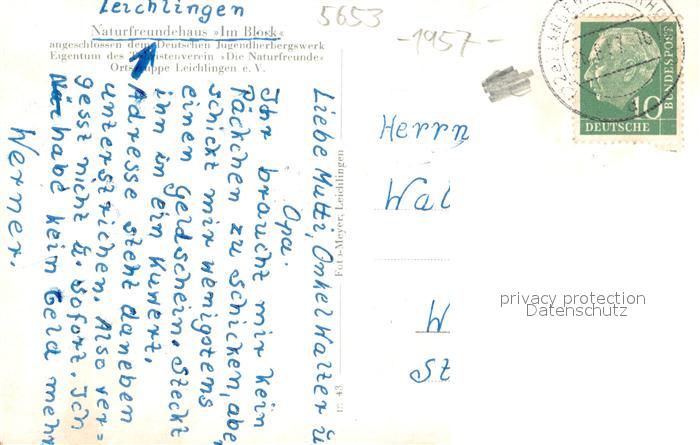 Leichlingen
Naturfreundehaus »Im Block«
angeschlossen dem Deutschen Jugendherbergswerk
Eigentum des Touristenverein »Die Naturfreunde«
Ortsgruppe Leichlingen e. V.
5653
-1957-
DEUTSCHE
BUNDESPOST
10
Liebe Mutti, Onkel Walter u
Opa.
Ihr braucht mir kein
Päckchen zu schicken, aber
schickt mir wenigstens
einen Geldschein. Steckt
ihn in ein Kuwert.
Adresse steht daneben
unterstrichen. Also ver=
gesst nicht u. sofort. Ich
habe kein Geld mehr
Werner.
Foto-Meyer, Leichlingen
43
Herrn
Wal
W
St
privacy protection
Datenschutz